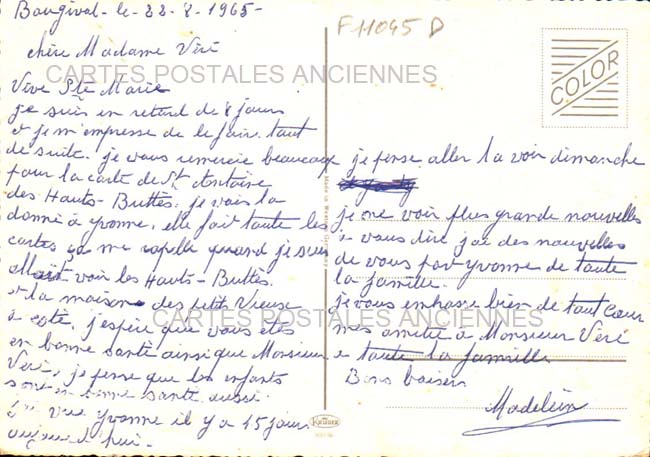 Bougival - le 22-8-1965-
F11045 D
chère Madame Véré
CARTES POSTALES ANCIENNES
COLOR
Vive Ste Marie
je suis en retard de 8 jours
et je m'empresse de le faire tout
de suite. je vous remercie beaucoup
pour la carte de St Antoine
des Hauts-Buttes. je vais la
donné à yvonne, elle fait toute les
cartes ça me rapelle quand je suis
allait voir les Hauts-Buttes.
et la maison des petit Vieuse
à coté. j'espère que vous êtes
en bonne santé ainsi que Monsieur
Véré, je pense que les enfants
sont en bonne santé aussi.
vue yvonne il y a 15 jours
aujourd'hui.
je pense aller la voir dimanche
je ne voir plus grande nouvelles
à vous dire j'ai des nouvelles
de vous par yvonne de toute
la famille.
je vous embrasse bien de tout cœur
mes amitié à Monsieur Véré
CARTES POSTALES ANCIENNES
e toute la famille
Bons baisers
Madelein
KRÜGER